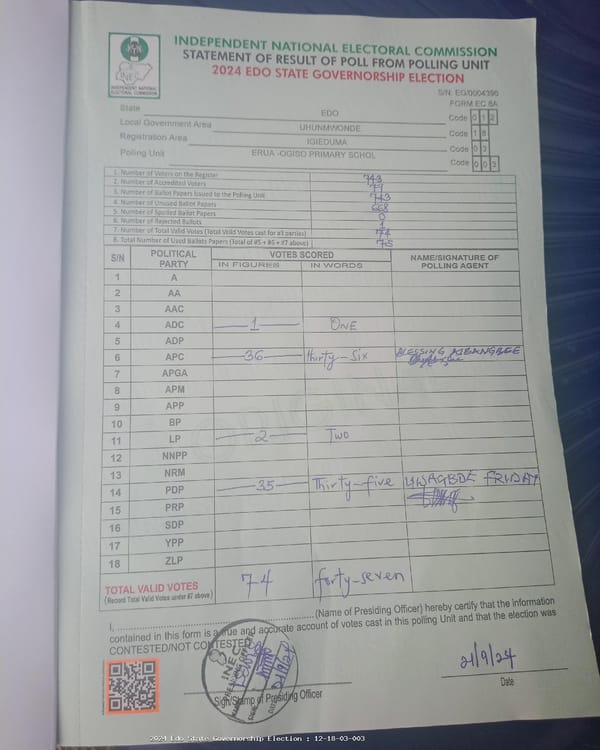 INDEPENDENT NATIONAL ELECTORAL COMMISSION
STATEMENT OF RESULT OF POLL FROM POLLING UNIT
2024 EDO STATE GOVERNORSHIP ELECTION
INEC
INDEPENDENT NATIONAL
ELECTORAL COMMISSION
S/N: EG/0004390
FORM EC 8A
State EDO Code 0 1 2
Local Government Area UHUNMWONDE Code 1 8
Registration Area IGIEDUMA Code 0 3
Polling Unit ERUA -OGISO PRIMARY SCHOL Code 0 0 3
1. Number of Voters on the Register 743
2. Number of Accredited Voters
3. Number of Ballot Papers Issued to the Polling Unit 743
4. Number of Unused Ballot Papers 668
5. Number of Spoiled Ballot Papers 0
6. Number of Rejected Ballots 1
7. Number of Total Valid Votes (Total Valid Votes cast for all parties) 74
8. Total Number of Used Ballots Papers (Total of #5 + #6 + #7 above) 75
S/N POLITICAL PARTY VOTES SCORED NAME/SIGNATURE OF POLLING AGENT
IN FIGURES IN WORDS
1 A
2 AA
3 AAC
4 ADC 1 ONE
5 ADP
6 APC 36 thirty-six BLESSING
7 APGA
8 APM
9 APP
10 BP
11 LP 2 TWO
12 NNPP
13 NRM
14 PDP 35 Thirty-five UWAGBOE FRIDAY
15 PRP
16 SDP
17 YPP
18 ZLP
TOTAL VALID VOTES 74 forty-seven
(Record Total Valid Votes under #7 above)
I, (Name of Presiding Officer) hereby certify that the information
contained in this form is a true and accurate account of votes cast in this polling Unit and that the election was
CONTESTED/NOT CONTESTED
INEC
21/9/24
21/9/24
Sign/Stamp of Presiding Officer
Date
2024 Edo State Governorship Election : 12-18-03-003